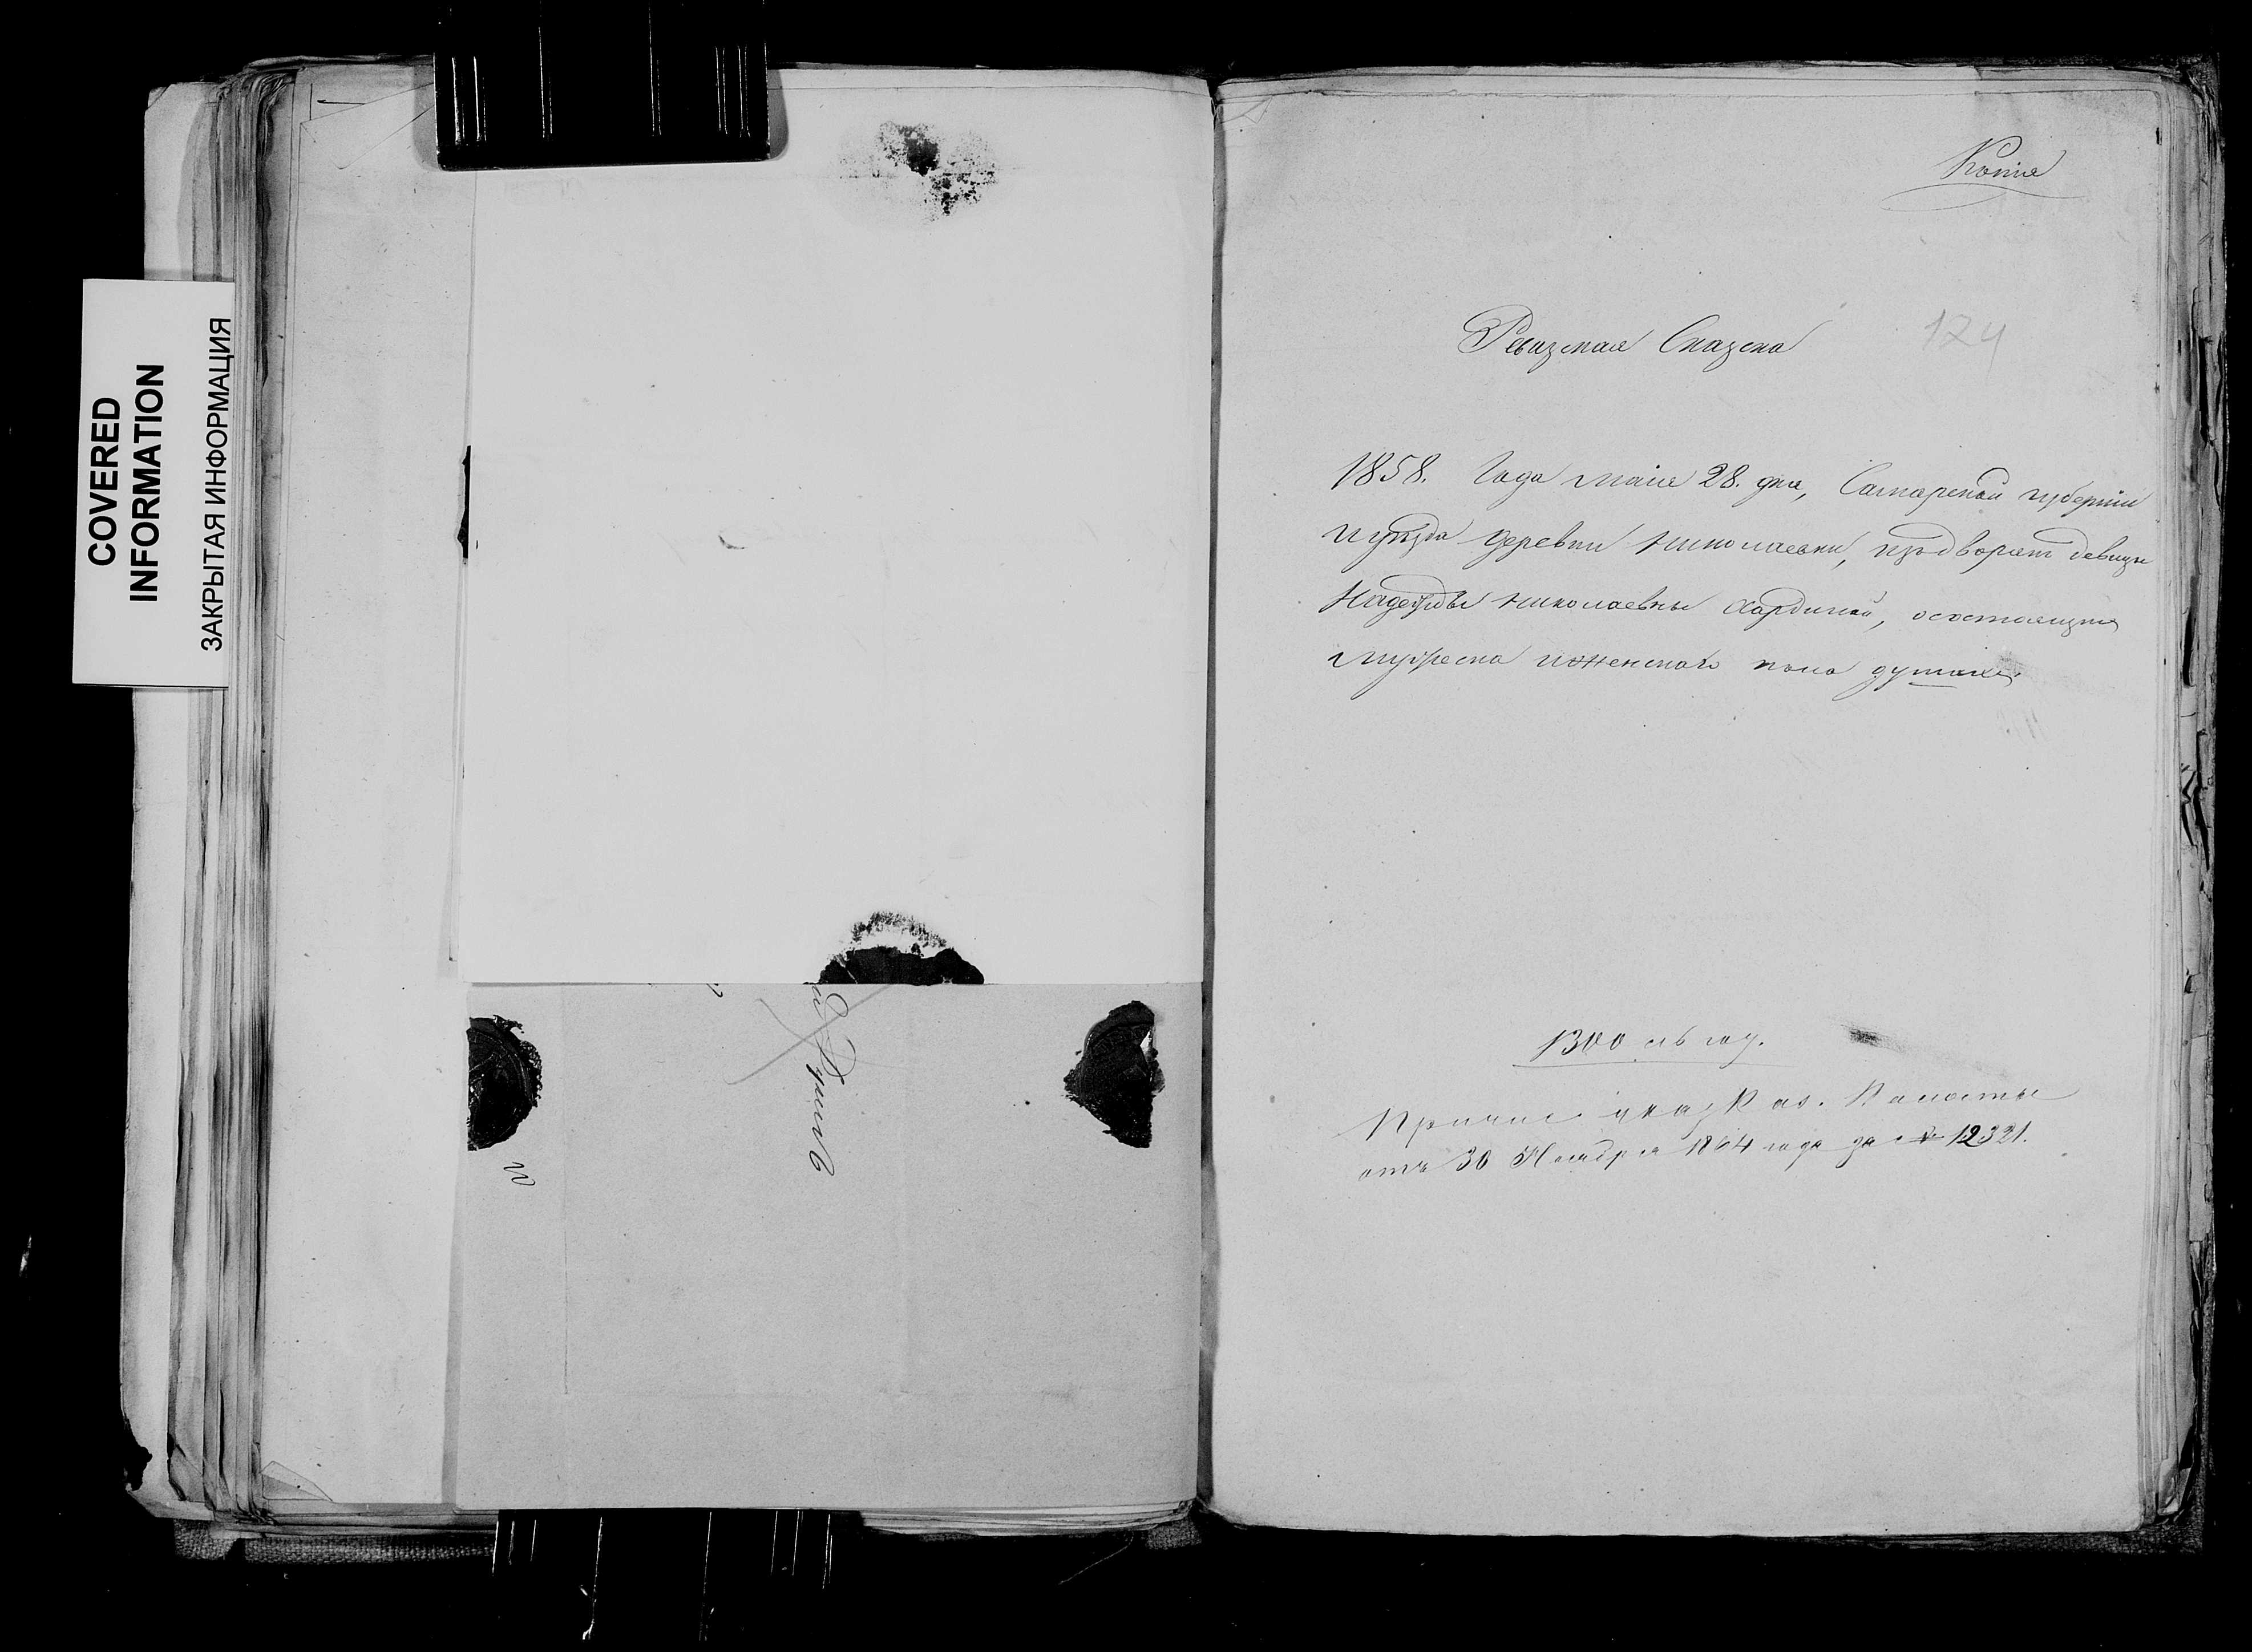 COVERED
INFORMATION
ЗАКРЫТАЯ ИНФОРМАЦИЯ
Копія
Ревизская Сказка
124
1858. Года маія 28. дня, Самарской губерніи
и уѣзда деревни Николаевки, изъ дворянъ девицы
Надежды Николаевны Хардиной, о состоящихъ
мужеска и женскаго пола душахъ
1300
указ Каз. Палаты
отъ 30 Ноября 1864 года за № 12321.